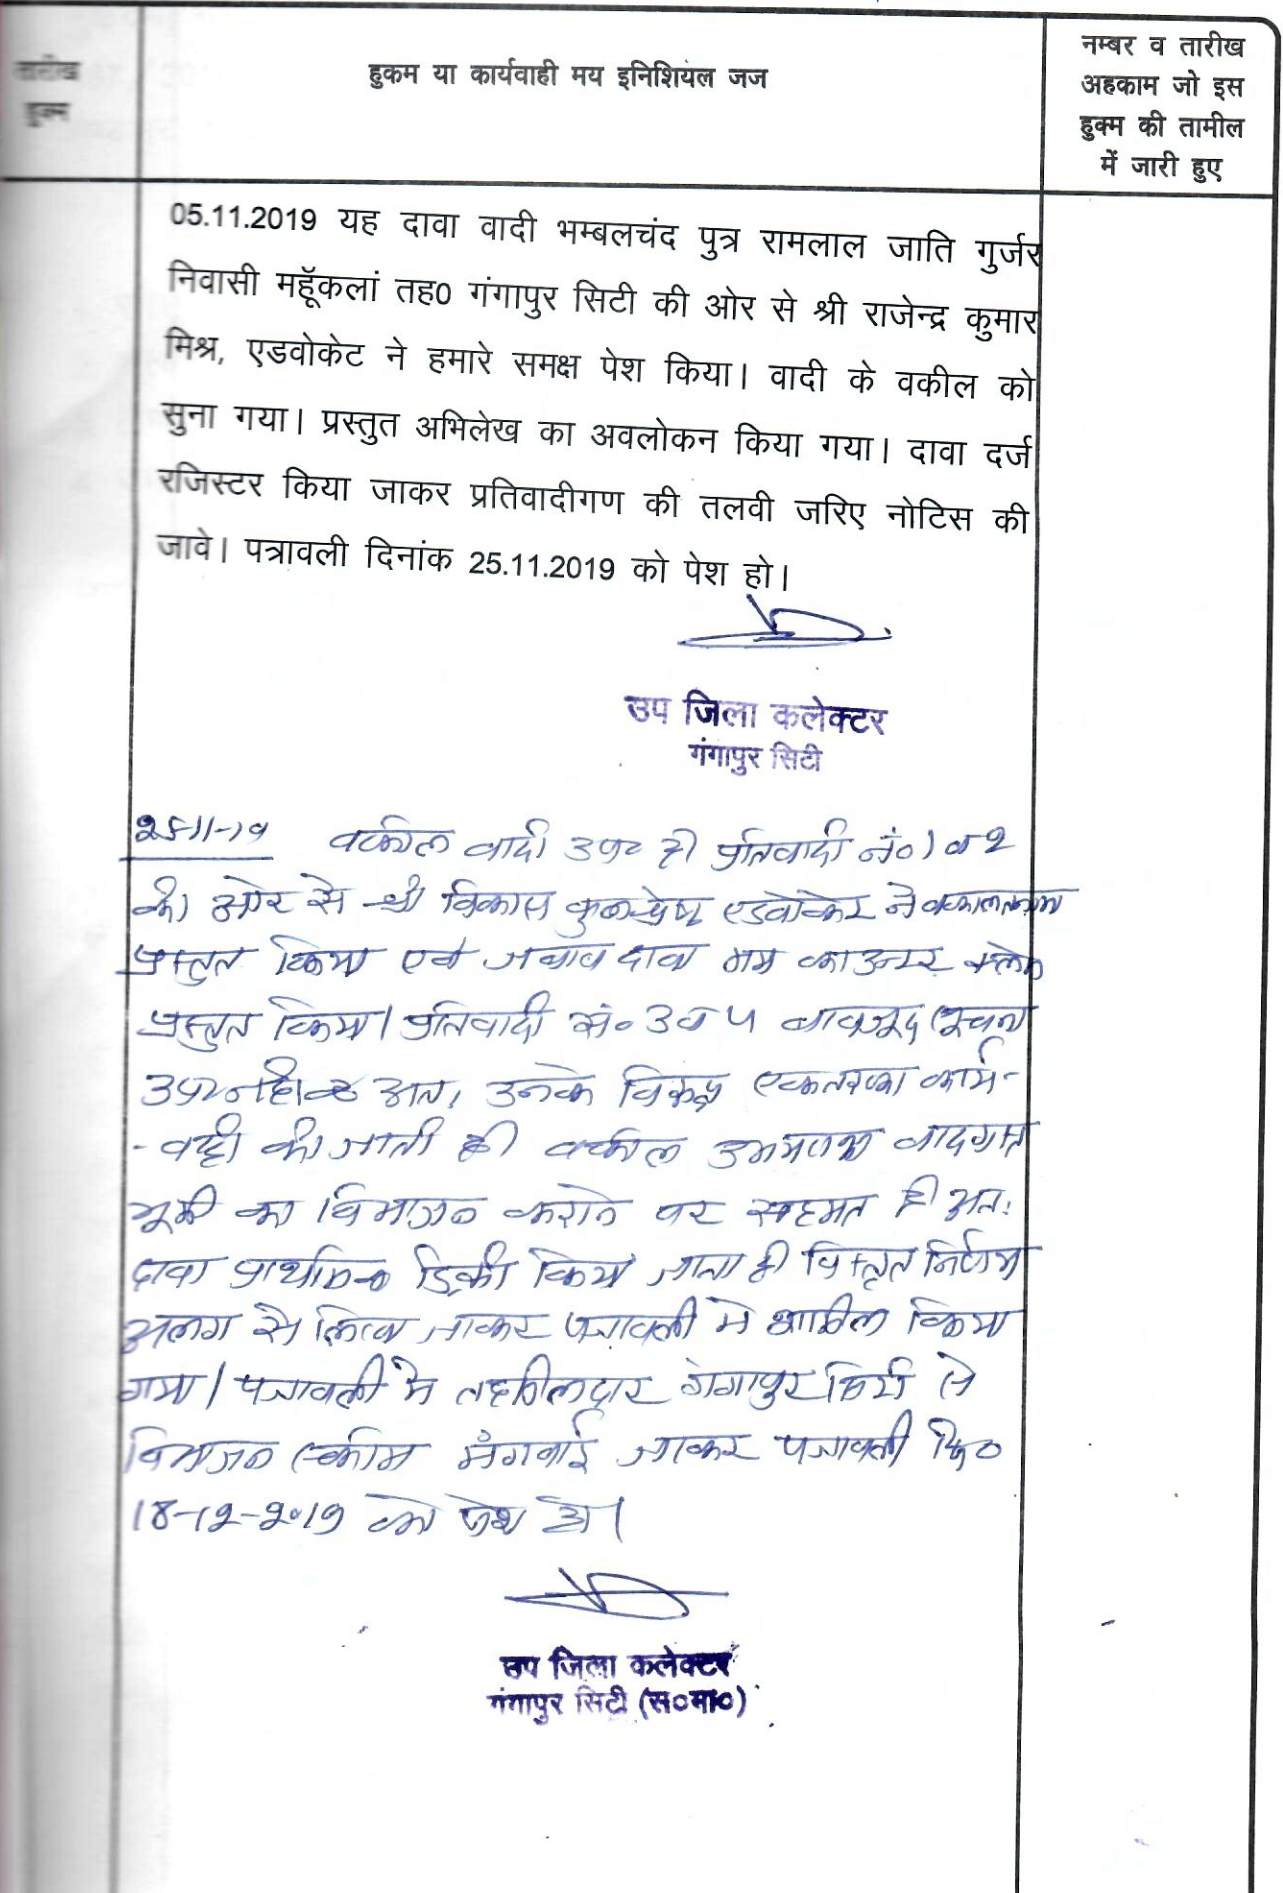 तारीख
हुक्म
हुकम या कार्यवाही मय इनिशियल जज
नम्बर व तारीख
अहकाम जो इस
हुक्म की तामील
में जारी हुए
05.11.2019 यह दावा वादी भम्बलचंद पुत्र रामलाल जाति गुर्जर
निवासी महूॅकलां तह0 गंगापुर सिटी की ओर से श्री राजेन्द्र कुमार
मिश्र, एडवोकेट ने हमारे समक्ष पेश किया। वादी के वकील को
सुना गया। प्रस्तुत अभिलेख का अवलोकन किया गया। दावा दर्ज
रजिस्टर किया जाकर प्रतिवादीगण की तलवी जरिए नोटिस की
जावे। पत्रावली दिनांक 25.11.2019 को पेश हो।
उप जिला कलेक्टर
गंगापुर सिटी
25-11-19 वकील वादी उप० है। प्रतिवादी नं० 1 व 2
की ओर से श्री विकास एडवोकेट ने वकालतनामा
प्रस्तुत किया एवं जवाब दावा मय काउन्टर क्लेम
प्रस्तुत किया। प्रतिवादी सं० 3 व 4 बावजूद सूचना
उप० नहीं है अतः उनके विरूद्ध एकतरफा कार्य-
-वाही की जाती है। वकील उभयपक्ष वादग्रस्त
भूमि का विभाजन कराने पर सहमत है। अतः
दावा प्राथमिक डिक्री किया जाता है। विस्तृत निर्णय
अलग से लिखा जाकर पत्रावली में शामिल किया
गया। पत्रावली में तहसीलदार गंगापुर सिटी से
विभाजन स्कीम मंगवाई जाकर पत्रावली दि०
18-12-2019 को पेश हो।
उप जिला कलेक्टर
गंगापुर सिटी (स०मा०)